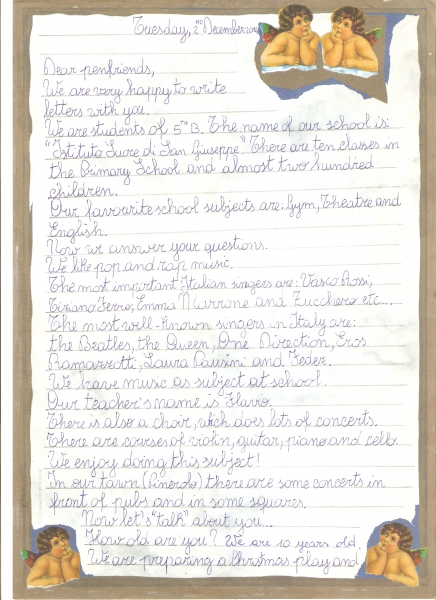 Tuesday, 2ND December 2014
Dear penfriends,
We are very happy to write
letters with you.
We are students of 5TH B. The name of our school is:
"Istituto Suore di San Giuseppe". There are ten classes in
the Primary School and almost two hundred
children.
Our favourite school subjects are: Gym, Theatre and
English.
Now we answer your questions.
We like pop and rap music.
The most important Italian singers are: Vasco Rossi,
Tiziano Ferro, Emma Marrone and Zucchero etc...
The most well-known singers in Italy are:
the Beatles, the Queen, One Direction, Eros
Ramazzotti, Laura Pausini and Fedez.
We have music as subject at school.
Our teacher's name is Flavio.
There is also a choir, wich does lots of concerts.
There are courses of violin, guitar, piano and cello.
We enjoy doing this subject!
In our town (Pinerolo) there are some concerts in
front of pubs and in some squares.
Now let's "talk" about you...
How old are you? We are 10 years old.
We are preparing a Christmas play and